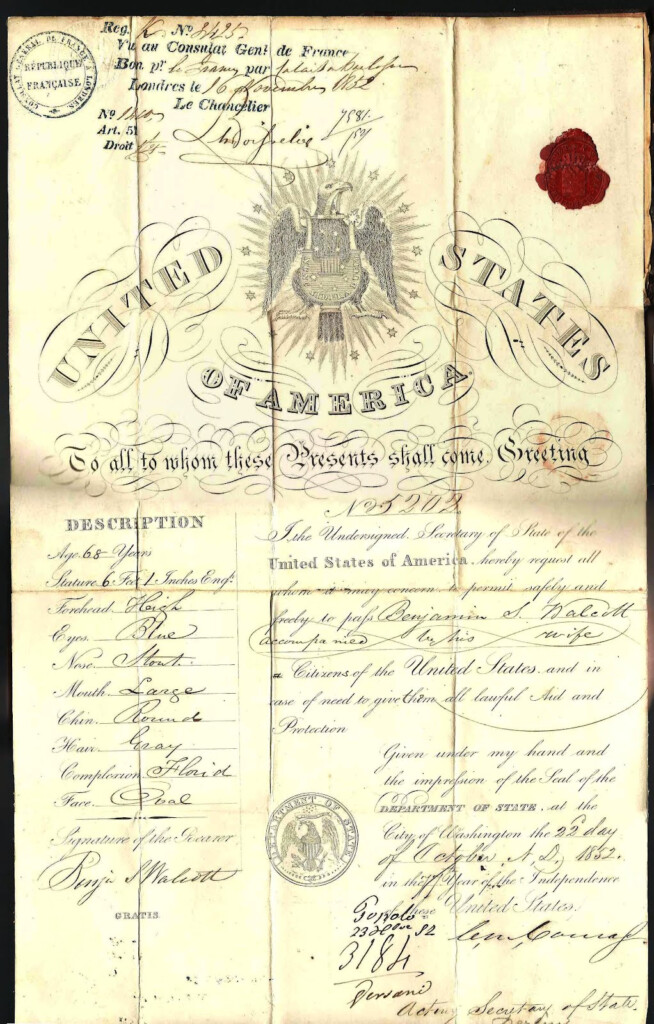 CONSULAT GÉNÉRAL DE FRANCE À LONDRES
RÉPUBLIQUE
FRANÇAISE
Reg. K Nº 2425
Vu au Consulat Genl. de France
Bon pr. la France par
Londres le 16 Novembre 1852
Le Chancelier
Nº
Art. 51
Droit
7581
UNITED STATES
OF AMERICA.
To all to whom these Presents shall come, Greeting
Nº 5202
DESCRIPTION
Age 68 Years
Stature 6 Ft 1 Inches Engl.
Forehead High
Eyes Blue
Nose Stout
Mouth Large
Chin Round
Hair Gray
Complexion Florid
Face Oval
Signature of the Bearer
Benja S Walcott
GRATIS
I the Undersigned, Secretary of State of the
United States of America, hereby request all
whom it may concern to permit safely and
freely to pass Benjamin S. Walcott
accompanied by his wife
a Citizens of the United States and in
case of need to give them all lawful Aid and
Protection
Given under my hand and
the impression of the Seal of the
DEPARTMENT OF STATE, at the
City of Washington the 22d day
of October A. D., 1852.
in the 77 Year of the Independence
of these United States.
DEPARTMENT OF STATE
52
3184
Acting Secretary of State.